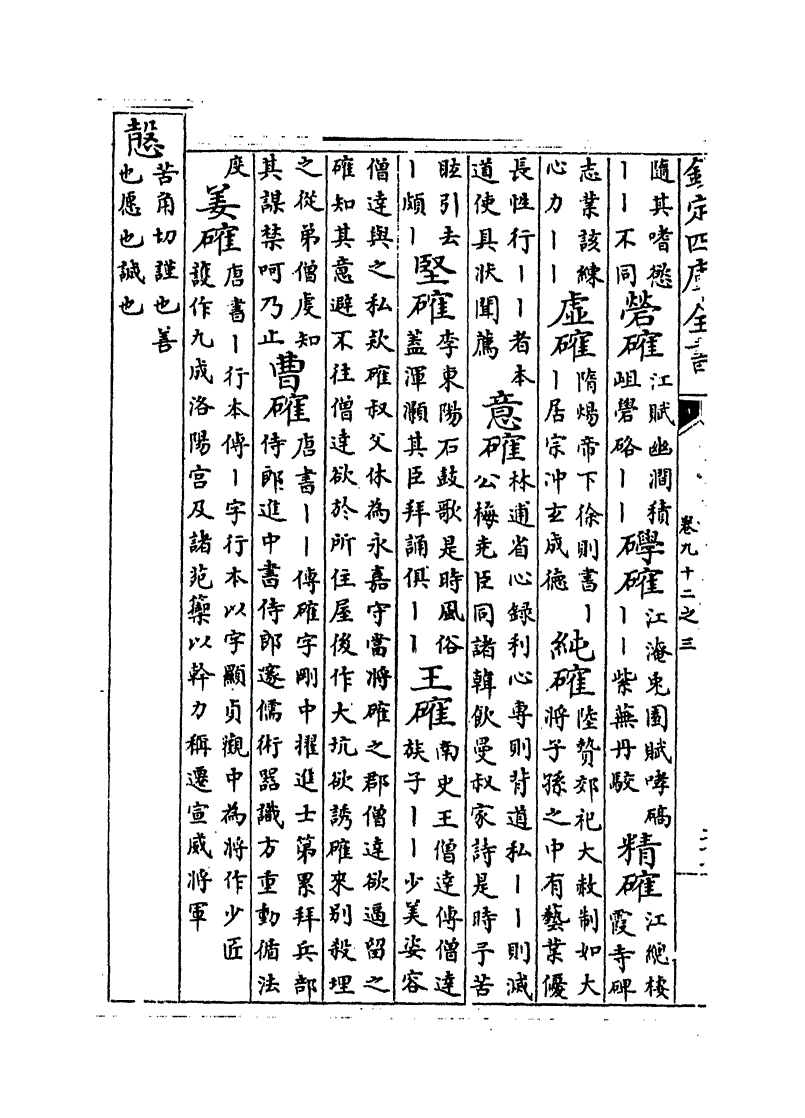 欽定四庫全書
卷九十二之三
隨其嗜慾
丨丨不同
礐確
江賦幽澗積
岨礐硌丨丨
礐確
江淹兎園賦哮磆
丨丨紫蕪丹駮
精確
江總棲
霞寺碑
志業該練
心力丨丨
虛確
隋煬帝下徐則書丨
丨居宗沖玄成德
純確
陸贄郊祀大赦制如大
將子孫之中有藝業優
長性行丨丨者本
道使具狀聞薦
意確
林逋省心録利心專則背道私丨丨則滅
公梅堯臣同諸韓飲曼叔家詩是時予苦
眩引去
丨頗丨
堅確
李東陽石鼓歌是時風俗
蓋渾灝其臣拜誦俱丨丨
王確
南史王僧達傳僧達
族子丨丨少美姿容
僧達與之私款確叔父休為永嘉守當將確之郡僧達欲逼留之
確知其意避不往僧達欲於所住屋後作大坑欲誘確來别殺埋
之從弟僧虔知
其謀禁呵乃止
曹確
唐書丨丨傳確字剛中擢進士第累拜兵部
侍郎進中書侍郎邃儒術器識方重動循法
度
姜確
唐書丨行本傳丨字行本以字顯貞觀中為將作少匠
護作九成洛陽宫及諸苑籞以幹力稱遷宣威將軍
愨
苦角切謹也善
也愿也誠也